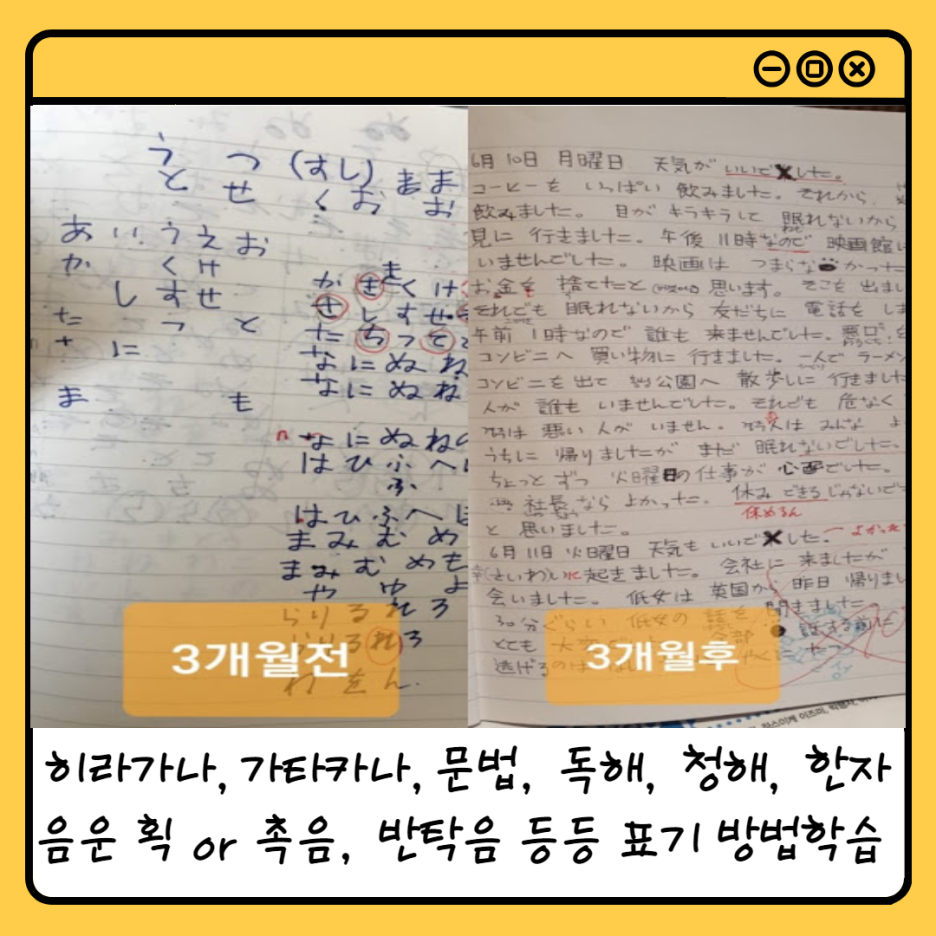 う つ (すし) まま
と せ く お お
あ い う え お
か く け
し す せ
た つ と
な に
ま も
ま
か き く け
さ し す せ
た ち つ て
な に ぬ ね
な に ぬ ね
な に ぬ ね の
は ひ ふ へ
ふ
は ひ ふ へ ほ
ま み む め
ま み む め も
や ゆ よ
ら り る れ ろ
ら り る れ ろ
わ を ん
3개월전
6月10日 月曜日 天気が いいでした。
コーヒーを いっぱい 飲みました。それから
飲みました。 目が キラキラして 眠れないから
見に 行きました。午後 11時なので 映画館に
いませんでした。 映画は つまらなかった
お金を 捨てたと 思います。 そこを 出まし
それでも 眠れないから 友だちに 電話を しま
午前 1時なので 誰も 来ませんでした。悪口
コンビニへ 買い物に 行きました。一人で ラーメン
コンビニを 出て 公園へ 散歩しに 行きました
人が 誰も いませんでした。それでも 危なく
は 悪い 人が いません。 人は みんな
うちに 帰りましたが まだ 眠れないでした。
ちょっと ずつ 火曜日の仕事が 心配でした。
社長なら よかった。 休み できるじゃないで
休めるん
と 思いました。
6月11日 火曜日 天気も いいでした。
(さいわい)に 起きました。 会社に 来ましたが
会いました。 は 英国から 昨日 帰りまし
30分ぐらい の 話を 聞きました
とても
逃げるの
3개월후
히라가나, 가타카나, 문법, 독해, 청해, 한자
음운 획 or 촉음, 반탁음 등등 표기 방법학습